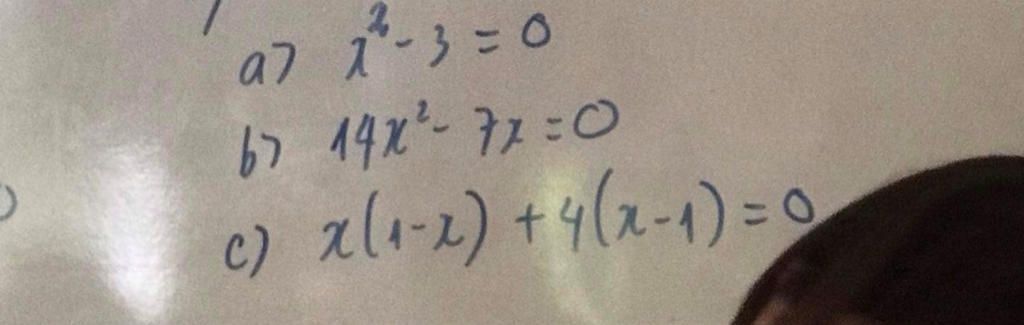 a) x² - 3 = 0
b) 14x² - 7x = 0
c) x(1-x) + 4(x-1) = 0